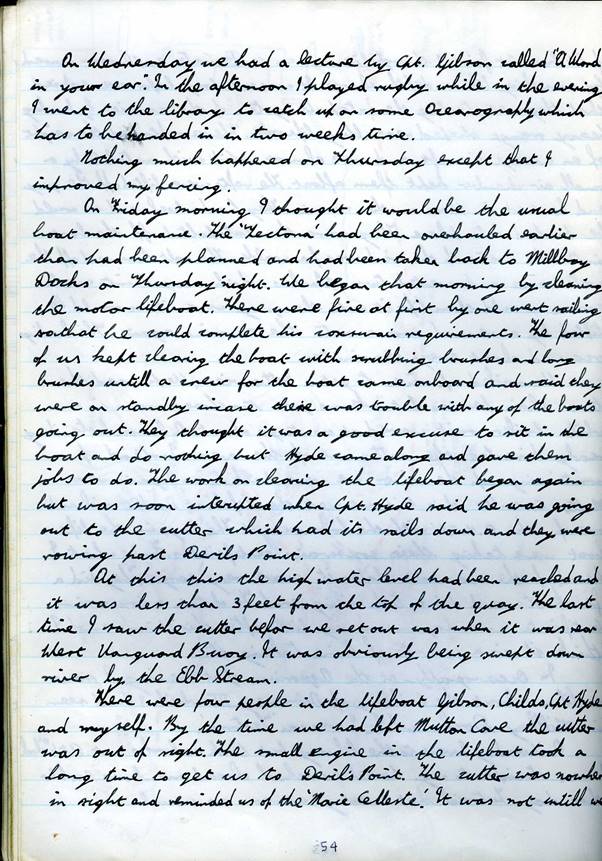 On Wednesday we had a lecture by Cpt. Gibson called "A Word
in your ear". In the afternoon I played rugby while in the evening
I went to the library to catch up on some Oceanography which
has to be handed in in two weeks time.
Nothing much happened on Thursday except that I
improved my fencing.
On Friday morning I thought it would be the usual
boat maintenance. The 'Tectona' had been overhauled earlier
than had been planned and had been taken back to Millbay
Docks on Thursday night. We began that morning by cleaning
the motor lifeboat. There were five at first by one went sailing
so that he could complete his coxswain requirements. The four
of us kept cleaning the boat with scrubbing brushes and long
brushes untill a crew for the boat came onboard and said they
were on standby incase there was trouble with any of the boats
going out. They thought it was a good excuse to sit in the
boat and do nothing but Hyde came along and gave them
jobs to do. The work on cleaning the lifeboat began again
but was soon interupted when Cpt. Hyde said he was going
out to the cutter which had its sails down and they were
rowing past Devils Point.
At this this the high water level had been reached and
it was less than 3 feet from the top of the quay. The last
time I saw the cutter befor we set out was when it was near
West Vanguard Buoy. It was obviously being swept down
river by the Ebb Stream.
There were four people in the lifeboat Gibson, Childs, Cpt Hyde
and myself. By the time we had left Mutton Cove the cutter
was out of sight. The small engine in the lifeboat took a
long time to get us to Devils Point. The cutter was nowhere
in sight and reminded us of the 'Marie Celleste'. It was not untill we
54